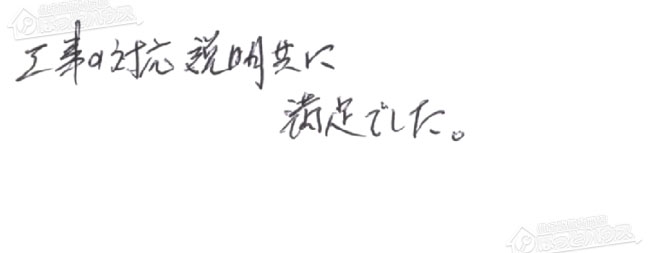 工事の対応説明共に
満足でした。